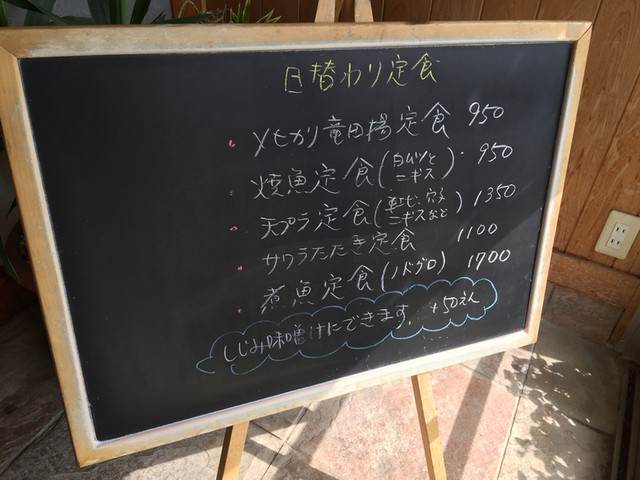 日替わり定食
メヒカリ竜田揚定食 950
焼魚定食(白ムツとニギス)・950
天プラ定食(甘エビ、穴子ニギスなど) 1350
サワラたたき定食 1100
煮魚定食(ノドグロ) 1700
しじみ味噌汁にできます。+50えん